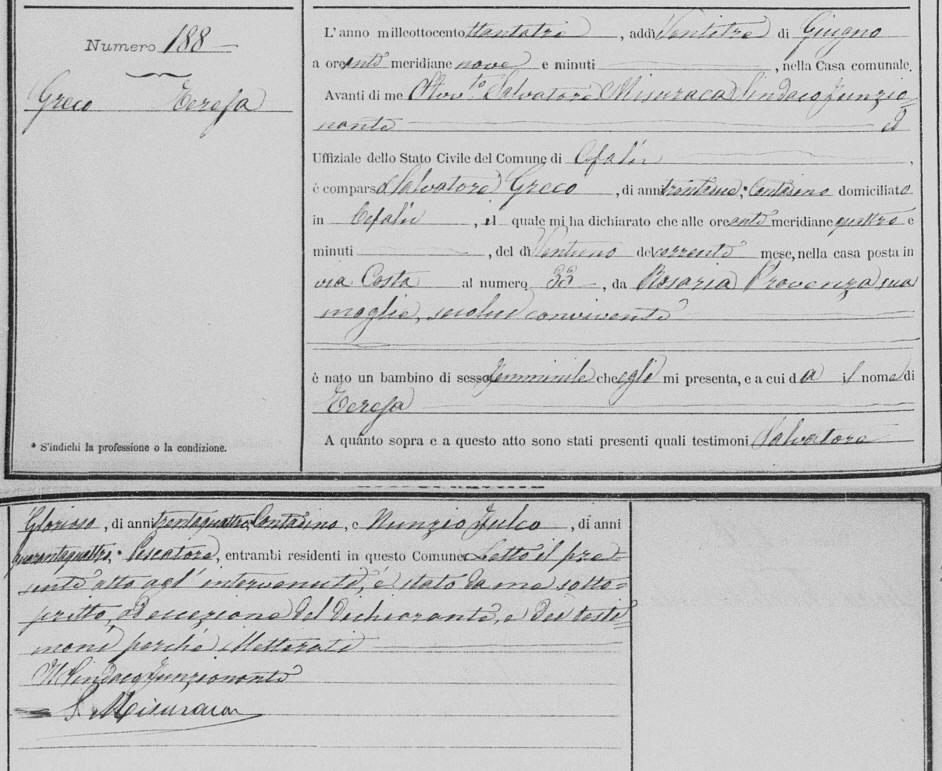 Numero 188
Greco Teresa
* S'indichi la professione o la condizione.
L'anno milleottocento ttantatre, addì Ventitre di Giugno
a ore anti meridiane nove e minuti , nella Casa comunale.
Avanti di me Salvatore Misuraca Sindaco funzio-
nante ed
Uffiziale dello Stato Civile del Comune di Cefalù ,
è comparso Salvatore Greco , di anni trentasei, * Contadino domiciliato
in Cefalù , il quale mi ha dichiarato che alle ore anti meridiane quattro e
minuti , del dì Ventuno del corrente mese, nella casa posta in
via Costa al numero 33 , da Rosaria Provenza sua
moglie, seco lui convivente
è nato un bambino di sesso femminile che egli mi presenta, e a cui dà il nome di
Teresa
A quanto sopra e a questo atto sono stati presenti quali testimoni Salvatore
Glorioso , di anni trentaquattro, Contadino, e Nunzio Fulco , di anni
quarantaquattro, * Pescatore, entrambi residenti in questo Comune. Letto il pre-
sente atto agl' intervenuti, è stato da me sotto-
scritto, ad eccezione del dichiarante, e dei testi-
moni perché illetterati
Il Sindaco funzionante
S. Misuraca